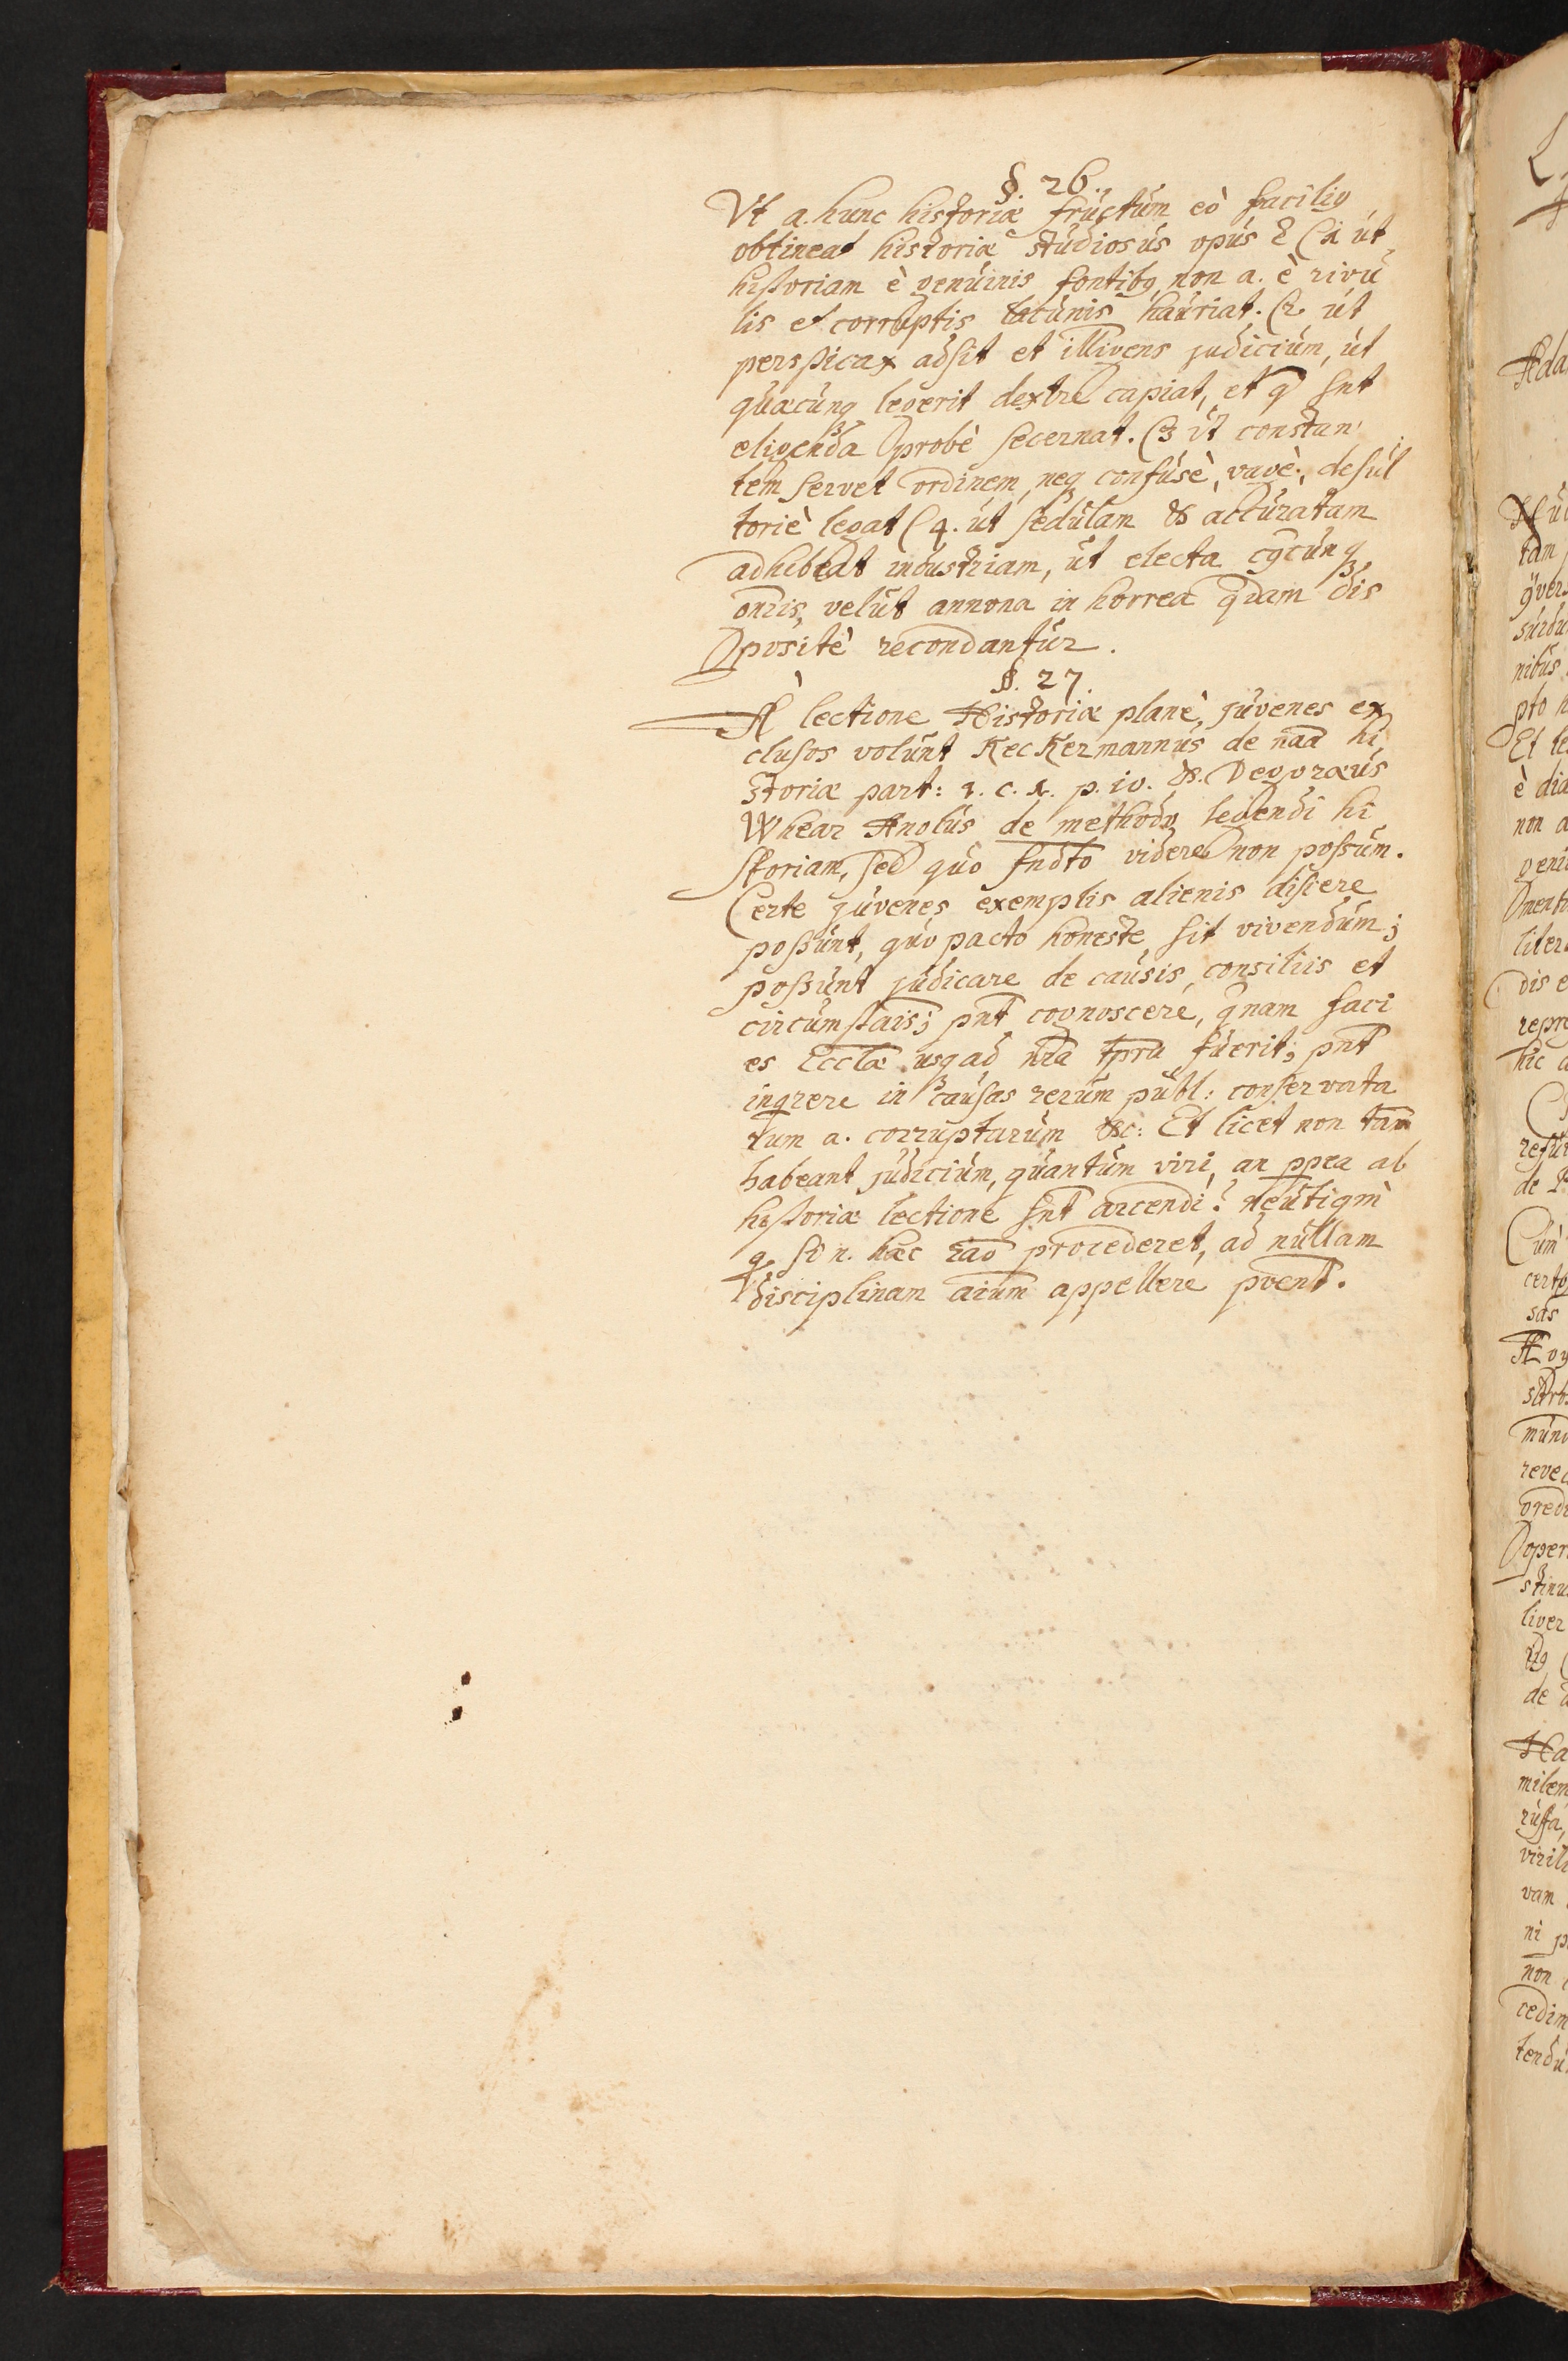 §. 26.
Vt a. hunc historiæ fructum eò facilig
obtineat historiæ studiosus opus ē (1 ut
historiam è genuinis fontibg non a. è rivu
lis et corruptis lacunis hauriat. (2 ut
perspicax adsit et illigens judicium, ut
quæcunq legerit dextrè capiat, et q snt
eligenda probè secernat. (3 ut constan
tem servet ordinem, neq confusè, vagè, desul
toriè legat (4. ut sedulam & accuratam
adhibeat industriam, ut electa cuqcunq
gnris, velut annona in horrea qdam dis
positè recondantur.
§. 27
À lectione Historiæ planè, juvenes ex
clusos volunt Keckermannus de naa hi
storiæ part: 1. c. 1. p. 10. &. Degoræus
Whear Anglus de methodo legendi hi
storiam, sed quo fndto videre non possum.
Certe juvenes exemplis alienis discere
possunt, quo pacto honeste sit vivendum;
possunt judicare de causis, consiliis et
circumstāis; pnt cognoscere, qnam faci
es Ecclæ usq ad nra tpra fuerit; pnt
inqrere in causas rerum publ: conservata
rum a. corruptarum &c: Et licet non tam
habeant judicium, quantum viri, an ppea ab
historiæ lectione snt arcendi? neutiqm
q si n. hæc rāo procederet, ad nullam
disciplinam aium appellere pvent.
L
Ada
tam
nibus
pto n
Et le
è dia
non a
geni
liter
dis e
repre
hic a
de P
Cum
certo
sas
mund
reved
oper
de a
Ha
milem
vam
ni p
non
cedim
tendu